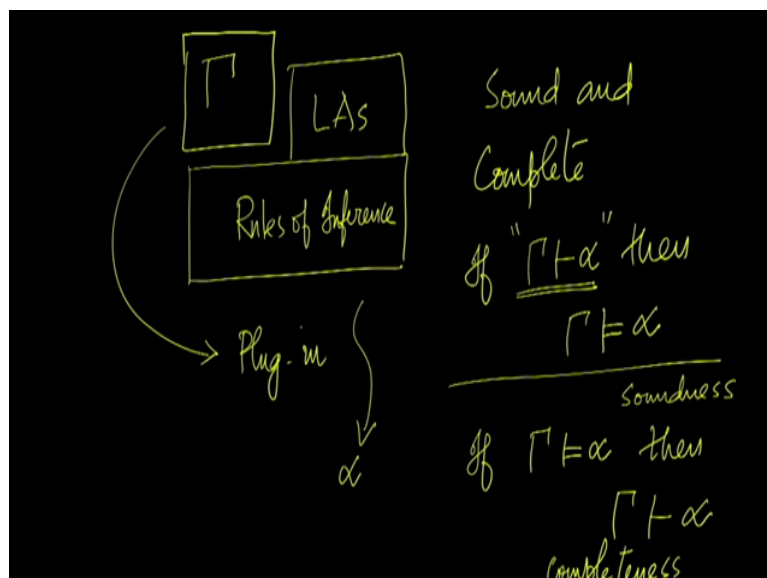 Γ
LAs
Rules of Inference
Plug-in
α
Sound and
Complete
If "Γ ⊢ α" then
Γ ⊨ α
soundness
If Γ ⊨ α then
Γ ⊢ α
completeness